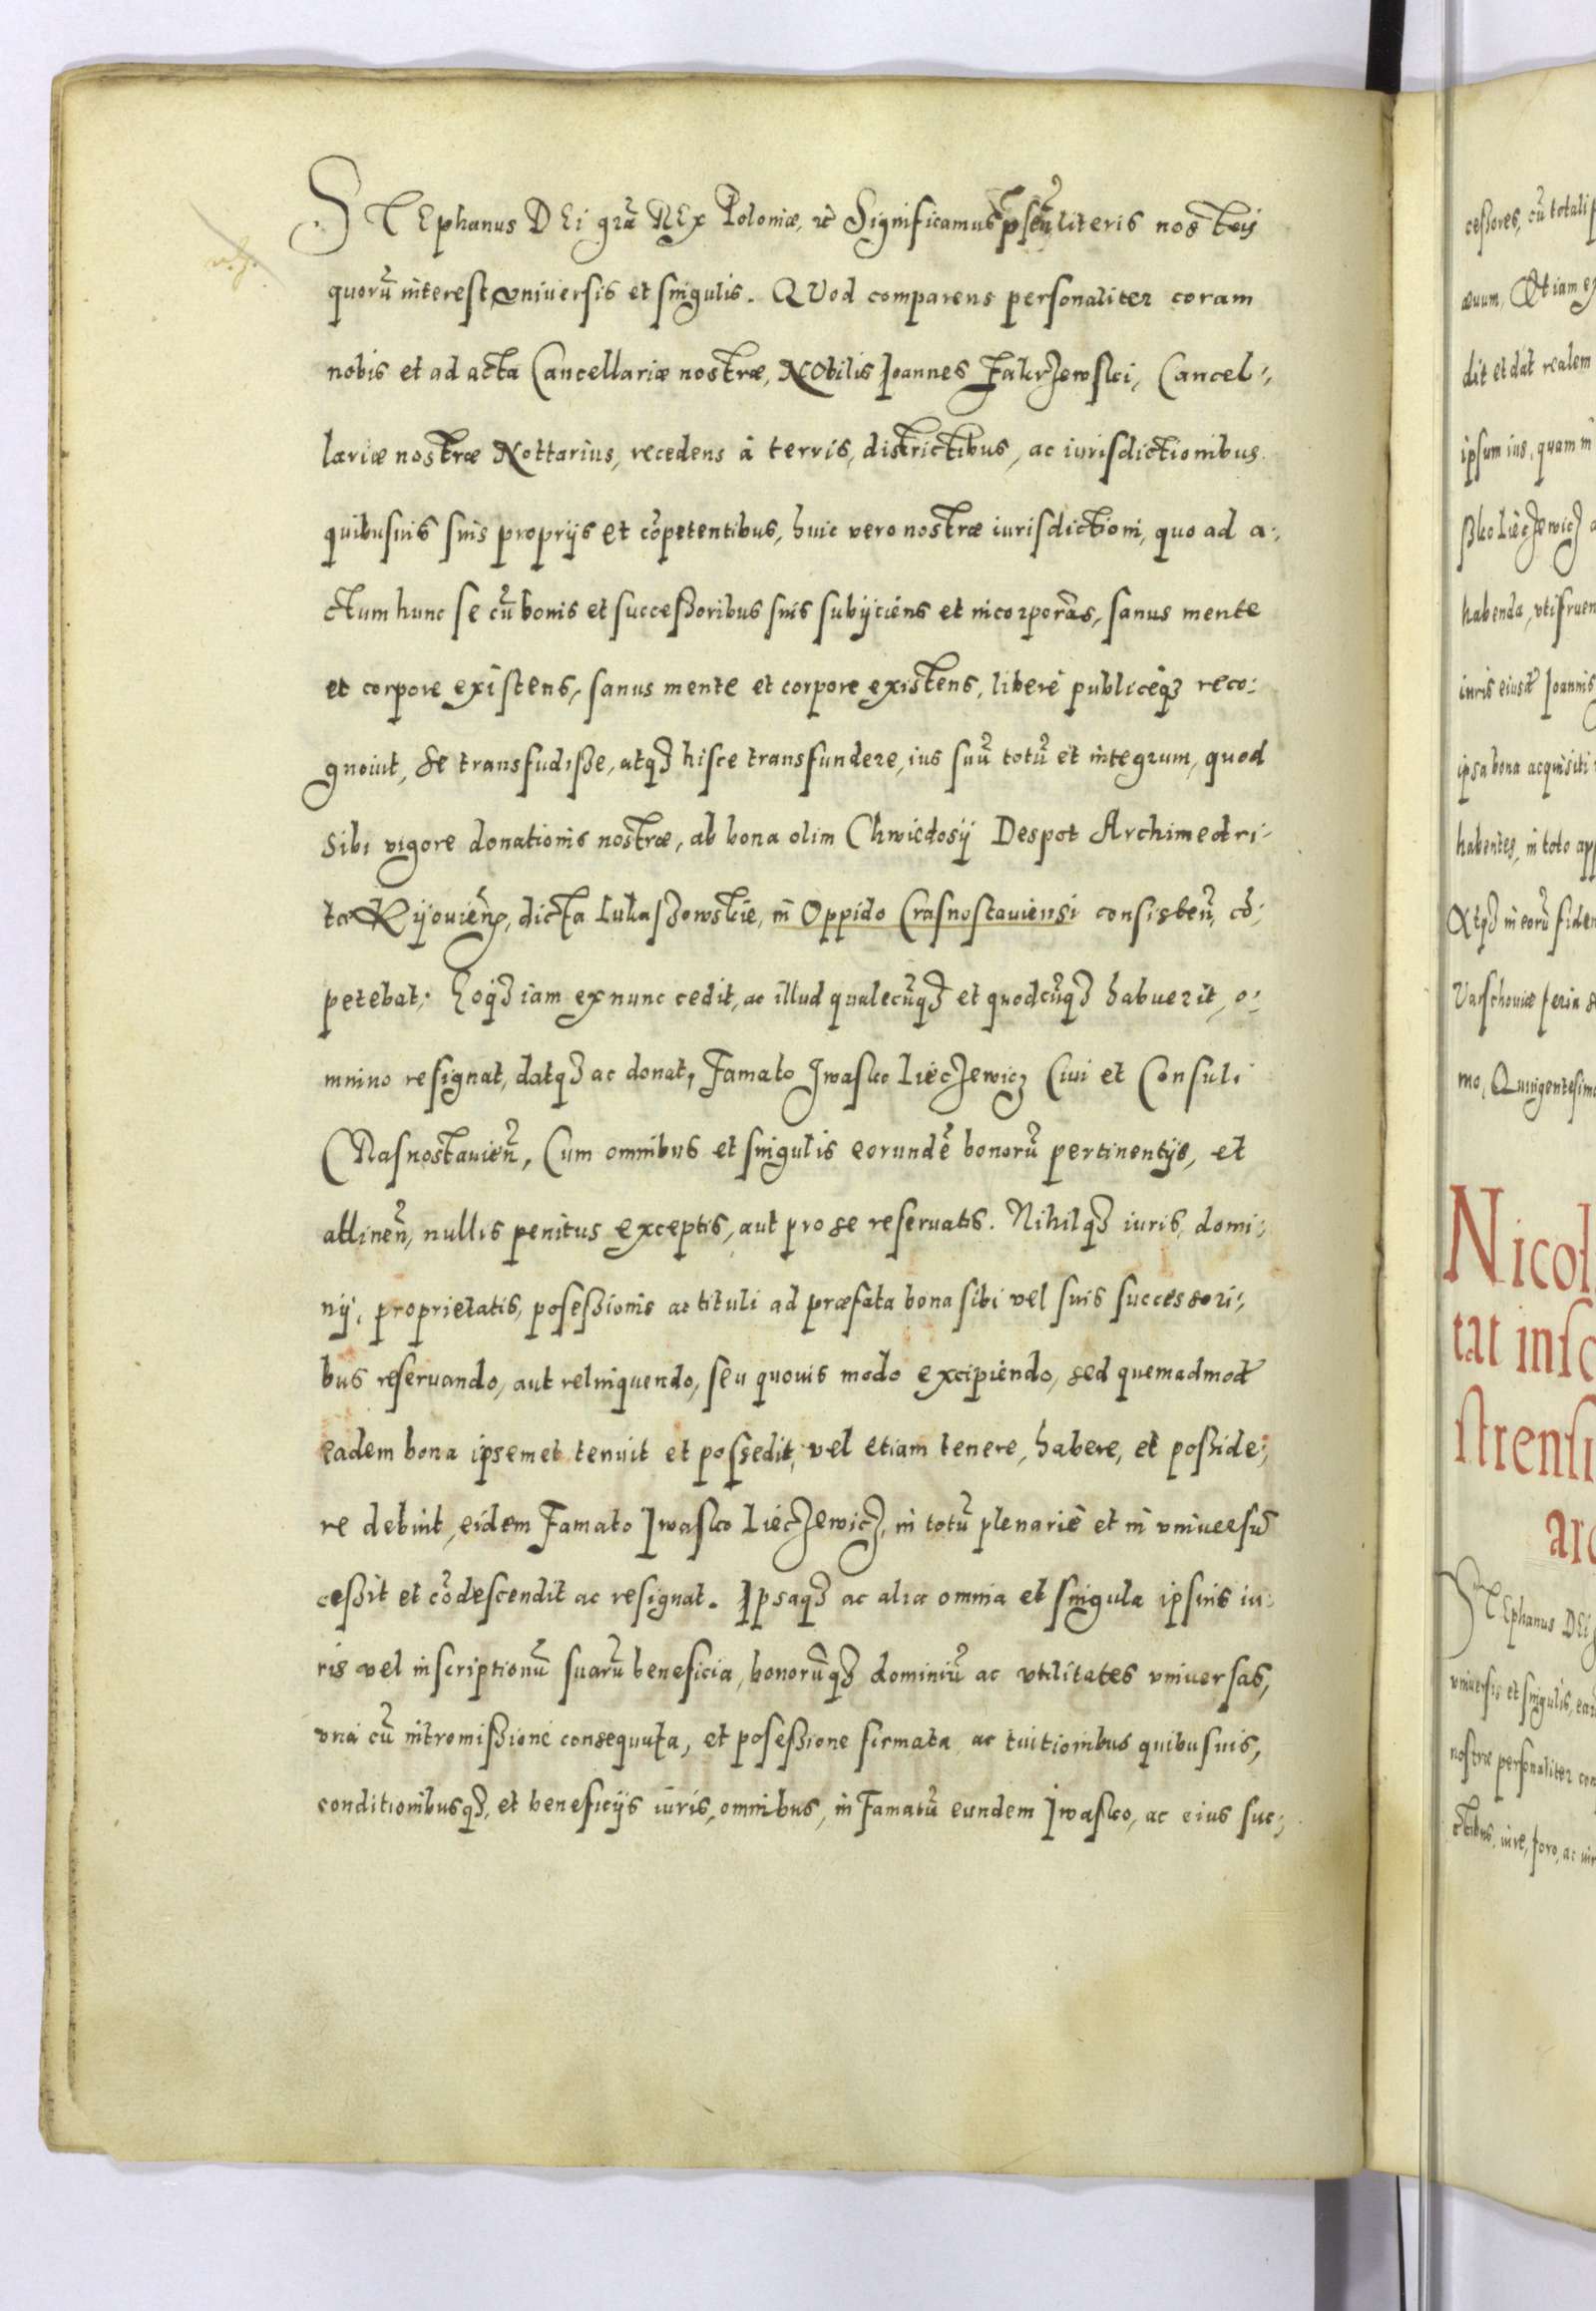 STEphanus DEi grã REx Poloniæ, etc Significamus p̃sẽn literis nostris
quorũ interest vniuersis et singulis. QVod comparens personaliter coram
nobis et ad acta Cancellariæ nostræ, NObilis Joannes Zakrzewski, Cancel:
lariæ nostræ Nottarius, recedens à terris, districtibus, ac iurisdictionibus
quibusuis suis proprijs et cõpetentibus, huic vero nostræ iurisdictioni, quo ad a:
ctum hunc se cũ bonis et succeßoribus suis subijciens et incorporãs, sanus mente
et corpore existens, sanus mente et corpore existens, liberè publiceqȝ reco:
gnouit, Se transfudiße, atqȝ hisce transfundere, ius suũ totũ et integrum, quod
Sibi vigore donationis nostræ, ab bona olim Chwiedosij Despot Archimedri:
tæ Kijouieñ, dicta Lukaszowskie, in Oppido Crasnostauiensi consisteñ, cõ:
petebat; Eoqȝ iam ex nunc cedit, ac illud qualecũqȝ et quodcũqȝ habuerit, o:
mnino resignat, datqȝ ac donat, Famato Jwasko Lieczewicz Ciui et Consuli
CRasnostauieñ, Cum omnibus et singulis eorundẽ bonorũ pertinentijs, et
attineñ, nullis penitus exceptis, aut pro se reseruatis. Nihilqȝ iuris, domi:
nij, proprietatis, poseßionis ac tituli ad præfata bona sibi vel suis successori:
bus reseruando, aut relinquendo, seu quouis modo excipiendo, sed quemadmod̃
eadem bona ipsemet tenuit et possedit, vel etiam tenere, habere, et poßide:
re debuit, eidem Famato Jwasko Lieczewicz, in totũ plenariè et in vniuersũ
ceßit et cõdescendit ac resignat. Ipsaqȝ ac alia omnia et singula ipsius iu:
ris vel inscriptionũ suarũ beneficia, bonorũqȝ dominiũ ac vtilitates vniuersas,
vnà cũ intromißione consequuta, et poseßione firmata ac tuitionibus quibusuis,
conditionibusqȝ, et beneficijs iuris, omnibus, in Famatũ eundem Jwasko, ac eius suc:
ceßores, cũ totali
æuum, Etiam
dit et dat realem
ipsum ius, quam in
ßko Lieczewicz
habenda, vtifruen
iuris eiusd̃ Joannis
ipsa bona acquisiti
habentes, in toto
Atqȝ in eorũ fidem
Varschouiæ feria
mo, Quingentesimo
Nicol
tat insc
strensi
arc
STEphanus DEi
vniuersis et singulis,
nostræ personaliter
ctibus, iure, foro, ac